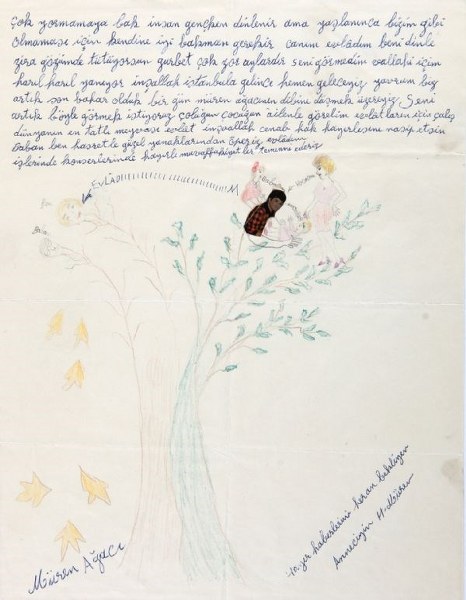 çok yormamaya bak insan gençken dinlenir ama yaşlanınca bizim gibi
olmaması için kendine iyi bakman gerekir canım evlâdım beni dinle
zira gözümde tütüyorsun gurbet çok zor aylardır seni görmedim vallahi içim
harıl harıl yanıyor inşallah istanbula gelince hemen geleceğiz yavrum biz
artık son bahar olduk bir gün müren ağacının dibine düşmek üzereyiz. Seni
artık böyle görmek istiyoruz çoluğun çocuğun ailenle görelim evlâtların için çalış
dünyanın en tatlı meyvası evlât inşaallah cenabı hak hayırlısını nasip etsin
baban ben hasretle güzel yanaklarından öperiz evlâdım
işlerinde konserlerinde hayırlı muvaffakiyetler temenni ederiz
EVLÂDIIIIIIIIIIIIIIIIM
Müren Ağacı
haberlerini heran bekliyen
Anneciğin H. Müren